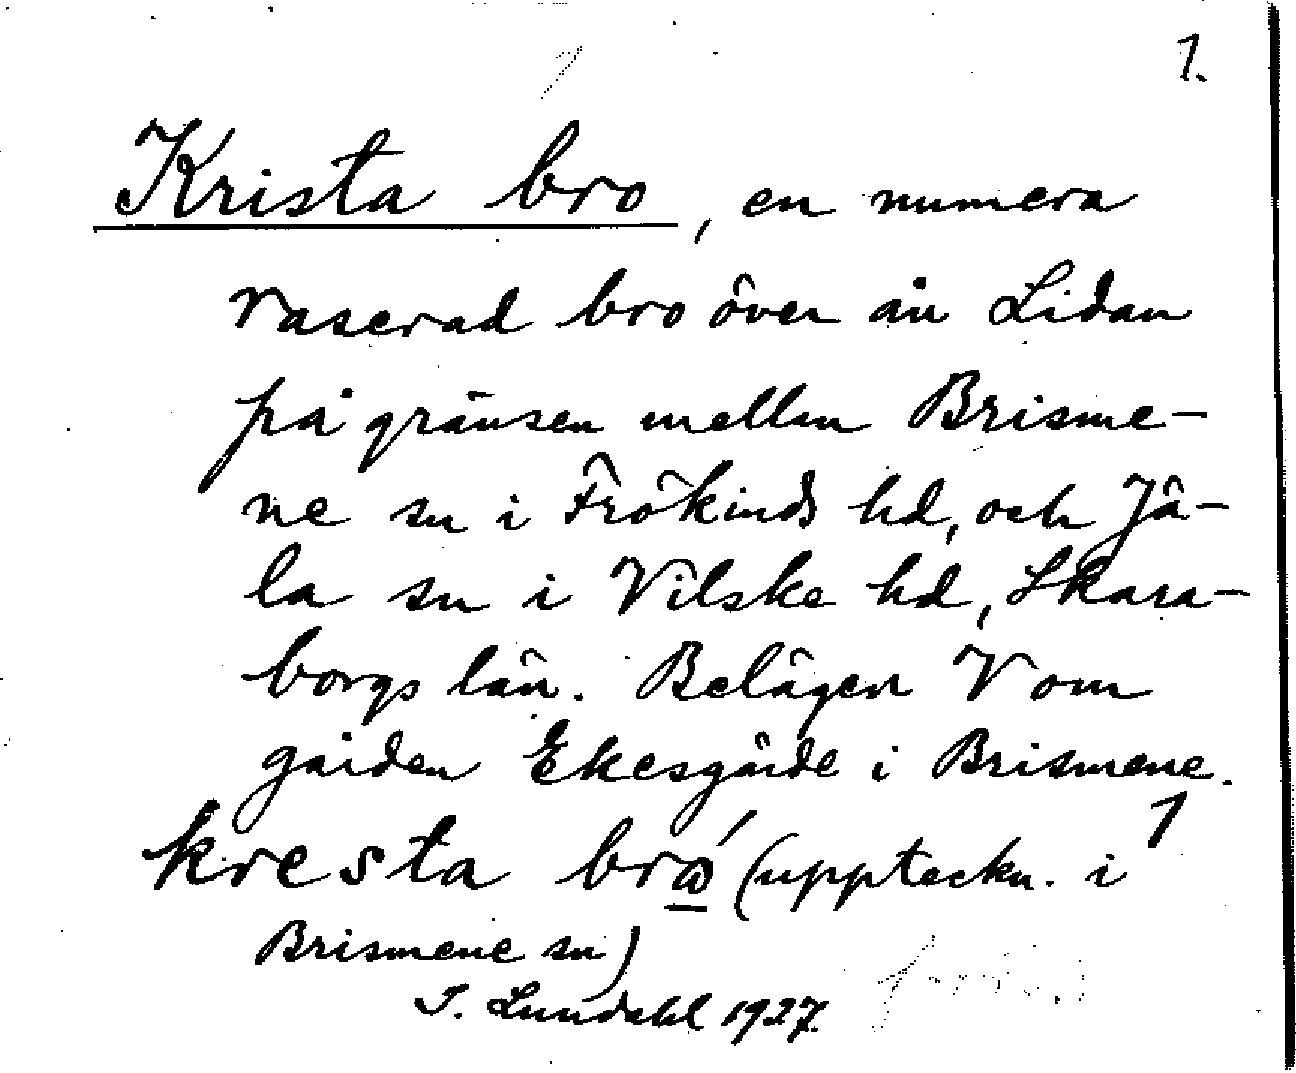 1.
Krista bro, en numera
raserad bro över ån Lidan
på gränsen mellan Brisme-
ne sn i Frökinds hd, och Jä-
la sn i Vilske hd, Skara-
borgs län. Belägen V om
gården Ekesgärde i Brismene.
1
kresta brώ̲ (uppteckn. i
Brismene sn)
I. Lundahl 1927.